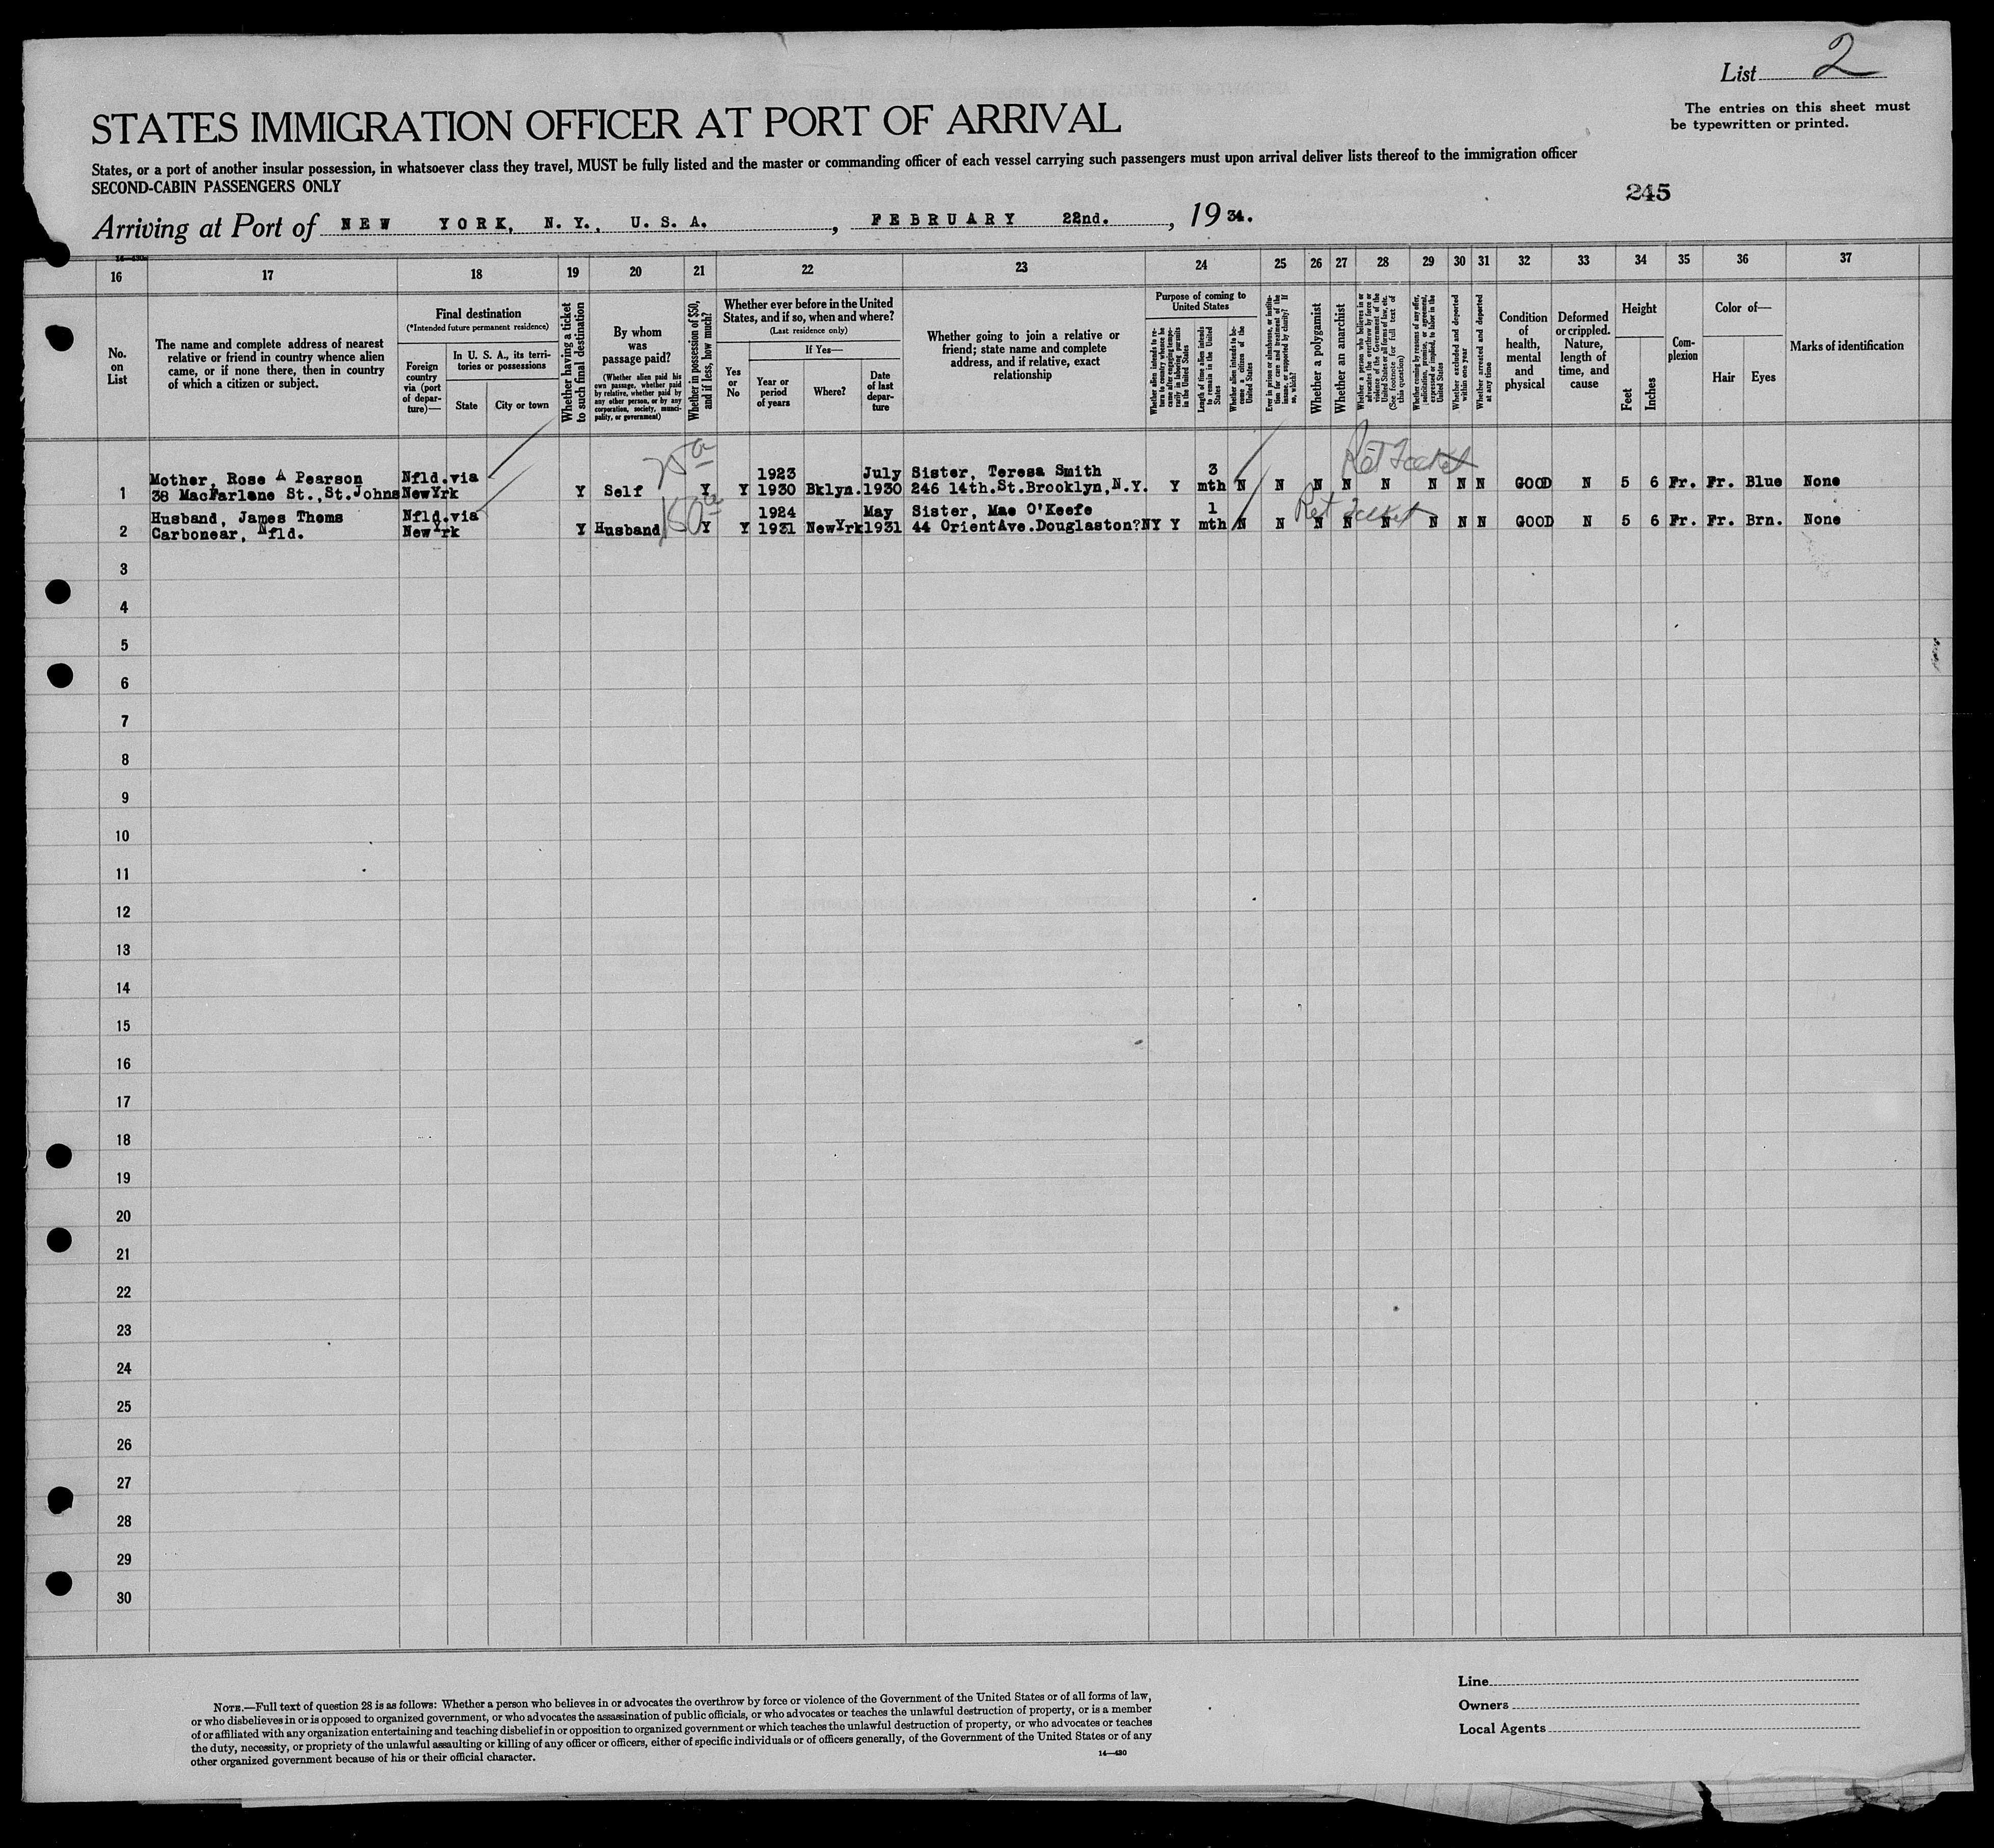 List 2
The entries on this sheet must
be typewritten or printed.
STATES IMMIGRATION OFFICER AT PORT OF ARRIVAL
States, or a port of another insular possession, in whatsoever class they travel, MUST be fully listed and the master or commanding officer of each vessel carrying such passengers must upon arrival deliver lists thereof to the immigration officer
SECOND-CABIN PASSENGERS ONLY
245
Arriving at Port of NEW YORK, N.Y., U.S.A., FEBRUARY 22nd., 1934.
16 17 18 19 20 21 22 23 24 25 26 27 28 29 30 31 32 33 34 35 36 37
No. on List
The name and complete address of nearest
relative or friend in country whence alien
came, or if none there, then in country
of which a citizen or subject.
Final destination
(*Intended future permanent residence)
Foreign country via (port of departure)—
In U. S. A., its territories or possessions
State
City or town
Whether having a ticket to such final destination
By whom was passage paid?
(Whether alien paid his own passage, whether paid by relative, whether paid by any other person, or by any corporation, society, municipality, or government)
Whether in possession of $50, and if less, how much?
Whether ever before in the United
States, and if so, when and where?
(Last residence only)
Yes or No
If Yes—
Year or period of years
Where?
Date of last departure
Whether going to join a relative or
friend; state name and complete
address, and if relative, exact
relationship
Purpose of coming to United States
Whether alien intends to return to country whence he came after engaging temporarily in laboring pursuits in the United States
Length of time alien intends to remain in the United States
Whether alien intends to become a citizen of the United States
Ever in prison or almshouse, or institution for care and treatment of the insane, or supported by charity? If so, which?
Whether a polygamist
Whether an anarchist
Whether a person who believes in or advocates the overthrow by force or violence of the Government of the United States or all forms of law, etc. (See footnote for full text of this question)
Whether coming by reason of any offer, solicitation, promise, or agreement, expressed or implied, to labor in the United States
Whether excluded and deported within one year
Whether arrested and deported at any time
Condition of health, mental and physical
Deformed or crippled. Nature, length of time, and cause
Height
Feet
Inches
Complexion
Color of—
Hair
Eyes
Marks of identification
Ret Ticket
Mother, Rose A Pearson Nfld.via 1923 July Sister, Teresa Smith 3
1 38 MacFarlane St., St.Johns NewYrk Y Self Y Y 1930 Bklyn. 1930 246 14th.St.Brooklyn, N.Y. Y mth N N N N N N N N GOOD N 5 6 Fr. Fr. Blue None
Husband, James Thoms Nfld.via 1924 May Sister, Mae O'Keefe 1 Ret Ticket
2 Carbonear, Nfld. NewYrk Y Husband 150 Y Y 1931 NewYrk 1931 44 OrientAve.Douglaston?NY Y mth N N N N N N N N GOOD N 5 6 Fr. Fr. Brn. None
3
4
5
6
7
8
9
10
11
12
13
14
15
16
17
18
19
20
21
22
23
24
25
26
27
28
29
30
NOTE.—Full text of question 28 is as follows: Whether a person who believes in or advocates the overthrow by force or violence of the Government of the United States or of all forms of law,
or who disbelieves in or is opposed to organized government, or who advocates the assassination of public officials, or who advocates or teaches the unlawful destruction of property, or is a member
of or affiliated with any organization entertaining and teaching disbelief in or opposition to organized government or which teaches the unlawful destruction of property, or who advocates or teaches
the duty, necessity, or propriety of the unlawful assaulting or killing of any officer or officers, either of specific individuals or of officers generally, of the Government of the United States or of any
other organized government because of his or their official character.
14—430
Line
Owners
Local Agents